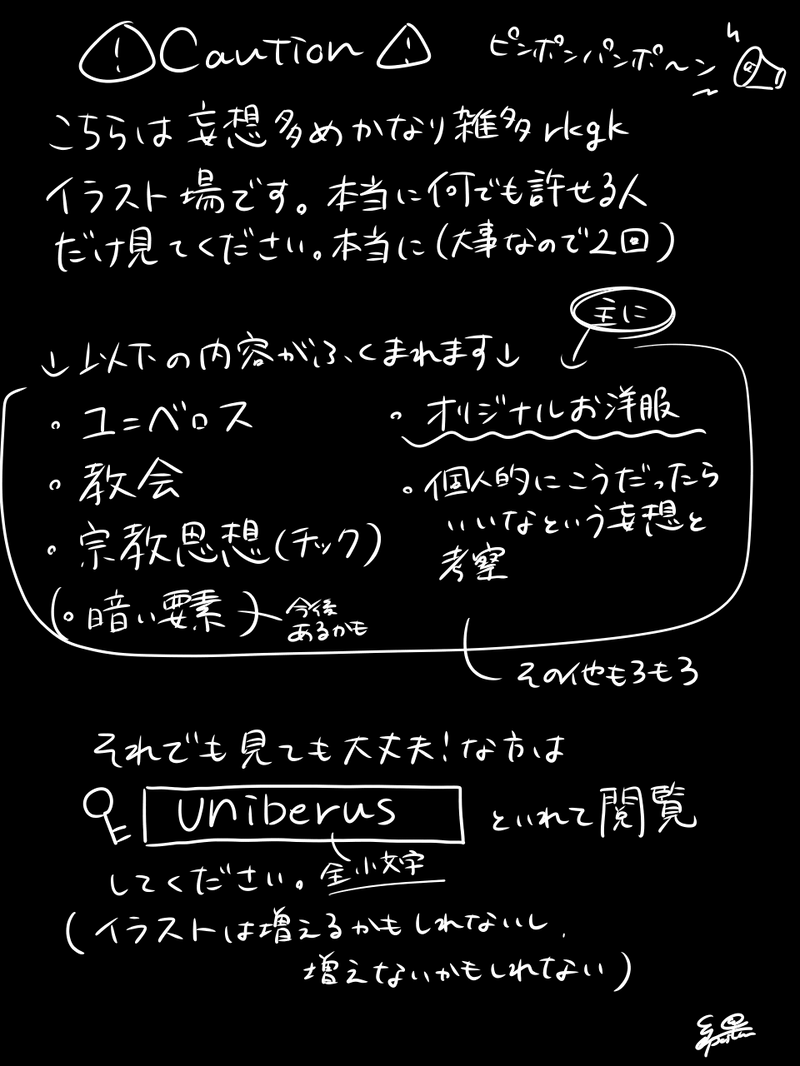 Caution
ピンポンパンポ〜ン
こちらは妄想多めかなり雑多rkgk
イラスト場です。本当に何でも許せる人
だけ見てください。本当に(大事なので2回)
主に
↓以下の内容がふくまれます↓
・ユニベロス
・教会
・宗教思想(チック)
(・暗い要素)
今後
あるかも
・オリジナルお洋服
・個人的にこうだったら
いいなという妄想と
考察
その他もろもろ
それでも見ても大丈夫!な方は
uniberus
といれて閲覧
してください。
全小文字
(イラストは増えるかもしれないし、
増えないかもしれない)